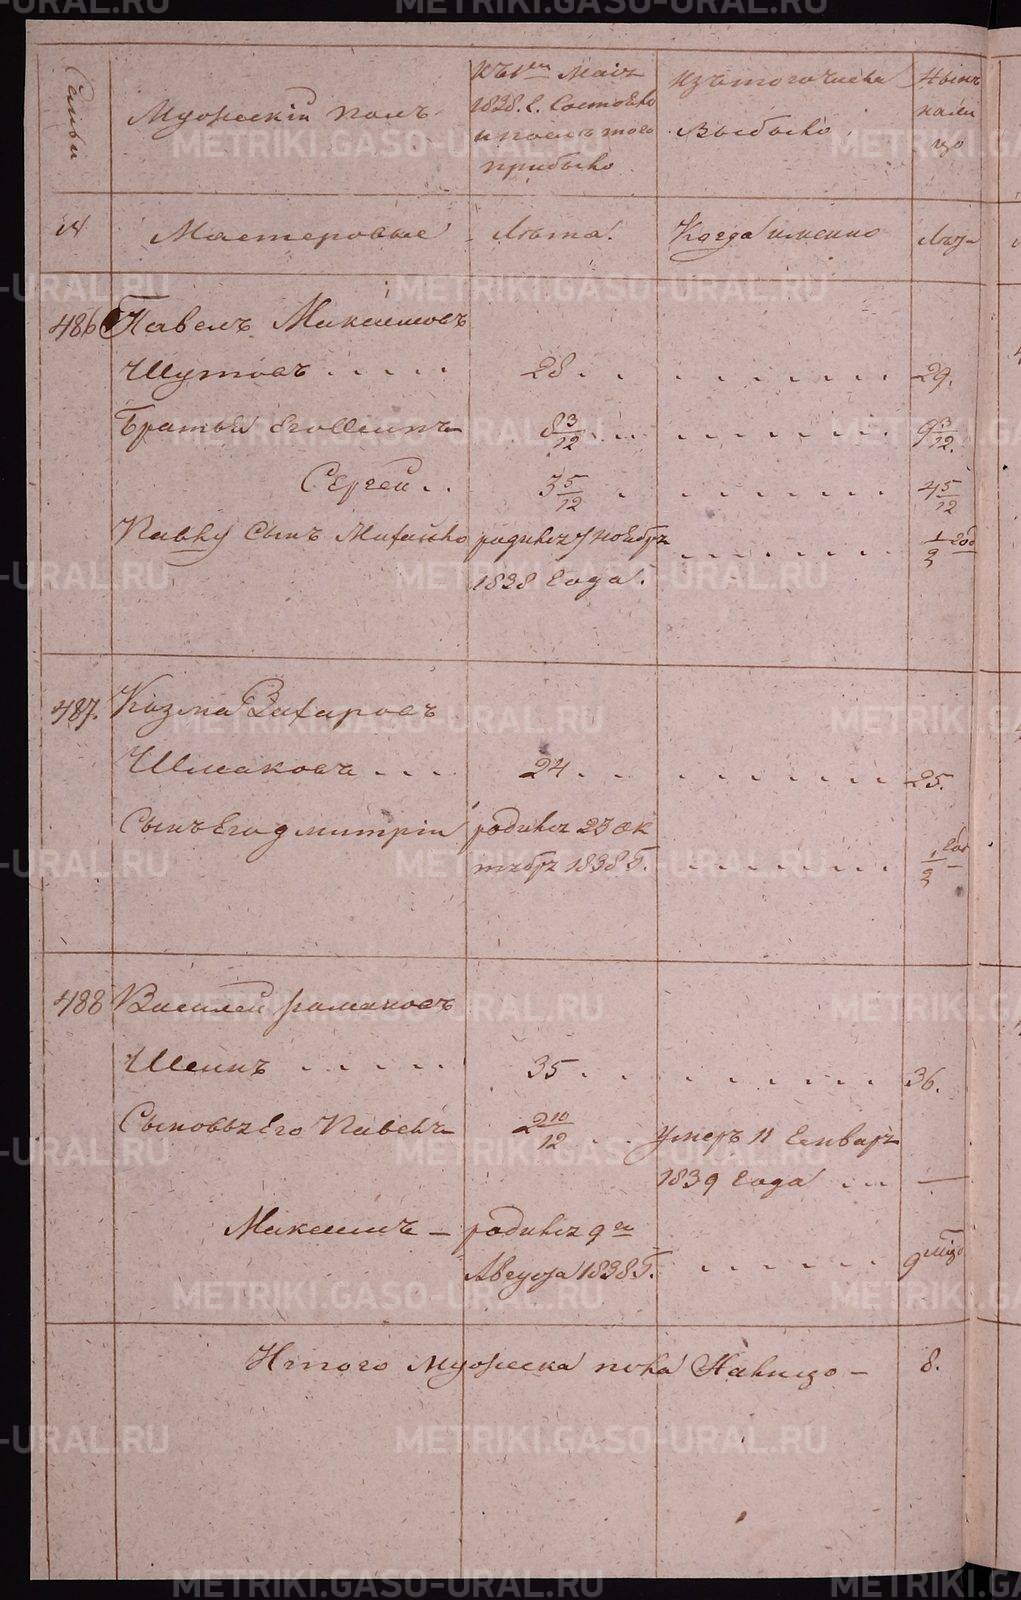 Семьи
Мужеский полъ.
Къ 1ен Маія
1838. г. Состояло
и послѣ того
прибыло
Изъ того числа
выбыло
Нынѣ
нали
цо
№
Мастеровые
Лѣта.
Когда именно
Лѣта
486 Павелъ Максимовъ
Шутовъ . . . . . 28 . . . . . . . . . . 29.
Братья его Осипъ 8 3/12 . . . . . . . . . . 9 3/12.
Сергей . . 3 5/12 . . . . . . . . 4 5/12
Павлу сынъ Михайло родился 7 ноября . . . . . . . 1/2 год
1838 года.
487. Козма Захаровъ
Шмаковъ . . . . 24 . . . . . . . . . 25.
Сынъ Его дмитріи родился 23 ок
тября 1838 г. . . . . . . . 1/2 год
488 Василей романовъ
Шеинъ . . . . . 35 . . . . . . . . . 36.
Сыновья Его Павелъ 2 10/12 . . умеръ 11 Енваря
1839 года . . . —
Максимъ — родился 9 го
Августа 1838 г. . . . . . . 9 мѣс
Итого мужеска пола Налицо — 8.
METRIKI.GASO-URAL.RU